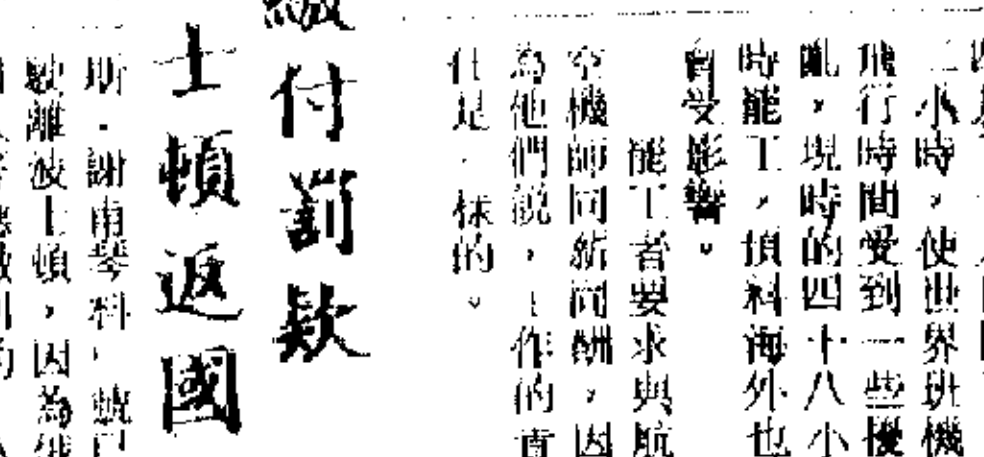 二小時，使世界班機
飛行時間受到一些擾
亂，現時的四十八小
時罷工，預料海外也
會受影響。
罷工者要求與航
空機師同薪同酬，因
為他們說，工作的責
任是一樣的。
繳付罰款
士頓返國
斯·謝甫琴科」號已
駛離波士頓，因為俄